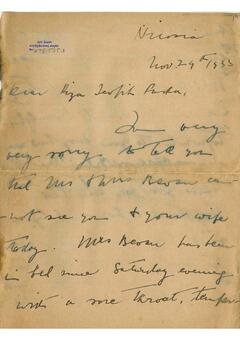 Nicosia
Nov 29th 1933
Dear Riza Tewfik Pasha,
I'm very
very sorry to tell you
that Mrs Bevan can-
not see you & your wife
today. Mrs Bevan has been
in bed since Saturday evening
with a sore throat, temper-